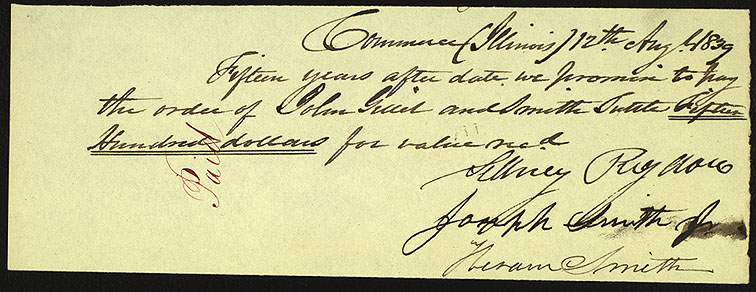 Commerce (Illinois) 12th. Augt. 1839
Fifteen years after date we promise to pay
the order of John Gillet and Smith Tuttle Fifteen
Hundred dollars for value recd
Paid
Sidney Rigdon
Joseph Smith Jr
Hiram Smith